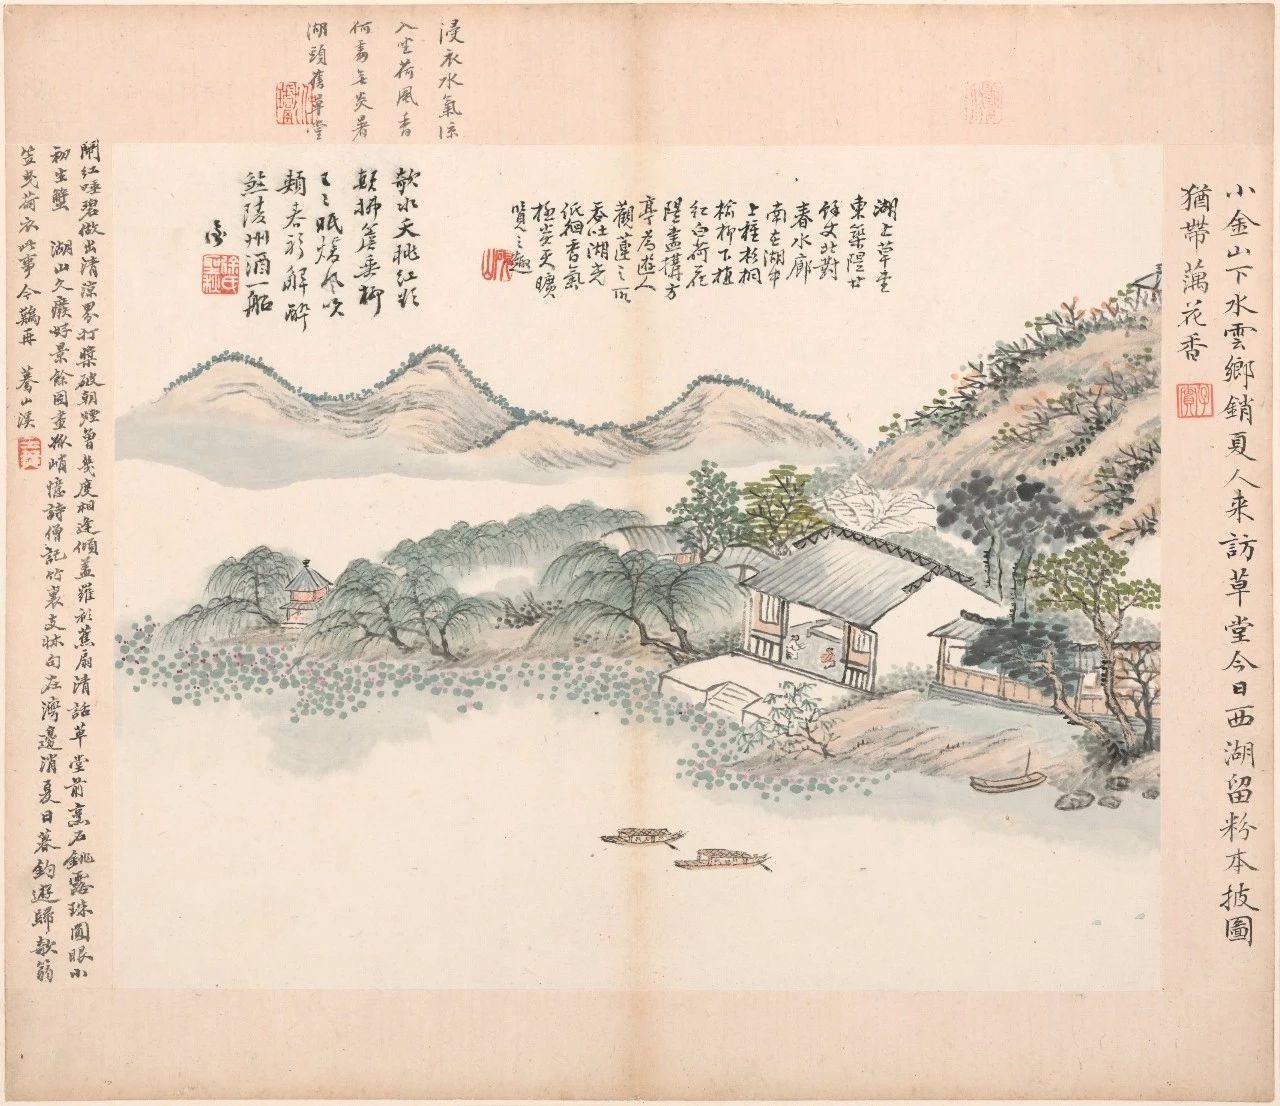 小金山下水雲鄉銷夏人来訪草堂今日西湖留粉本披圖
猶帶藕花香
浸衣水氣涼
入坐荷風香
何處無炎暑
湖頭舊草堂
湖上草堂
東築隄廿
餘丈北對
春水廊
南在湖中
上種杉桐
榆柳下植
紅白荷花
隄盡構方
亭為遊人
觀蓮之所
吞吐湖光
低徊香氣
極炎天曠
覽之趣
欹水夭桃紅欲
顛拂簷垂柳
眠煖風吹
頰春衫解醉
煞陵州酒一船
鬧紅唾碧做出清涼界打槳破朝煙曾幾度相逢傾蓋羅衫蕉扇清話草堂前烹石銚露珠圓眼小
初生蟹 湖山久癈好景餘圖畫孤峭憶詩僧記竹裏支牀句在灣邊消夏日暮釣遊歸欹箬
笠曳荷衣此事今難再 驀山溪